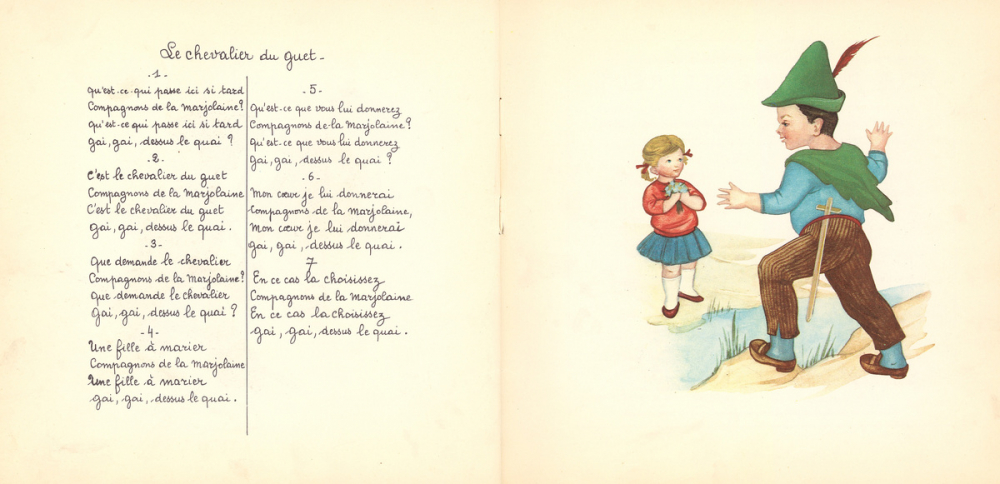 Le chevalier du guet-
-1-
qu'est-ce qui passe ici si tard
Compagnons de la Marjolaine?
qu'est-ce qui passe ici si tard
gai, gai, dessus le quai ?
-2-
C'est le chevalier du guet
Compagnons de la Marjolaine
C'est le chevalier du guet
gai, gai, dessus le quai.
-3-
Que demande le chevalier
Compagnons de la Marjolaine?
Que demande le chevalier
gai, gai, dessus le quai ?
-4-
Une fille à marier
Compagnons de la Marjolaine
Une fille à marier
gai, gai, dessus le quai.
-5-
Qu'est-ce que vous lui donnerez
Compagnons de la Marjolaine?
Qu'est-ce que vous lui donnerez
gai, gai, dessus le quai ?
-6-
Mon cœur je lui donnerai
Compagnons de la Marjolaine,
Mon cœur je lui donnerai
gai, gai, dessus le quai.
7
En ce cas la choisissez
Compagnons de la Marjolaine
En ce cas la choisissez
gai, gai, dessus le quai.